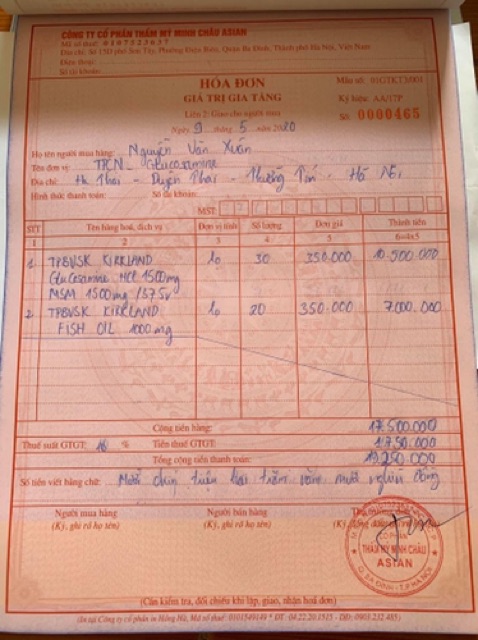 CÔNG TY CỔ PHẦN THẨM MỸ MINH CHÂU ASIAN
Mã số thuế: 0107523637
Địa chỉ: Số 15D phố Sơn Tây, Phường Điện Biên, Quận Ba Đình, Thành phố Hà Nội, Việt Nam
Điện thoại:
Số tài khoản:
HÓA ĐƠN
GIÁ TRỊ GIA TĂNG
Liên 2: Giao cho người mua
Ngày 9 tháng 5 năm 2020
Mẫu số: 01GTKT3/001
Ký hiệu: AA/17P
Số: 0000465
Họ tên người mua hàng: Nguyễn Văn Xuân
Tên đơn vị: TPCN Glucosamine
Địa chỉ: Duyên Thái - Thường Tín - Hà Nội
Hình thức thanh toán: Số tài khoản:
MST:
STT Tên hàng hoá, dịch vụ Đơn vị tính Số lượng Đơn giá Thành tiền
1 2 3 4 5 6=4x5
1 TPBVSK KIRKLAND lọ 30 350.000 10.500.000
Glucosamine HCL 1500mg
MSM 1500mg /375v
2 TPBVSK KIRKLAND lọ 20 350.000 7.000.000
FISH OIL 1000mg
Cộng tiền hàng: 17.500.000
Thuế suất GTGT: 10 % Tiền thuế GTGT: 1.750.000
Tổng cộng tiền thanh toán: 19.250.000
Số tiền viết bằng chữ: Mười chín triệu hai trăm năm mươi nghìn đồng
Người mua hàng Người bán hàng
(Ký, ghi rõ họ tên) (Ký, ghi rõ họ tên)
CỔ PHẦN
THẨM MỸ MINH CHÂU
ASIAN
Q. BA ĐÌNH - T.P HÀ NỘI
(Cần kiểm tra, đối chiếu khi lập, giao, nhận hoá đơn)
(In tại Công ty cổ phần in Hồng Hà, Mã số thuế: 0101549149 * ĐT: 04.22.20.1515 - DĐ: 0903 232 485)